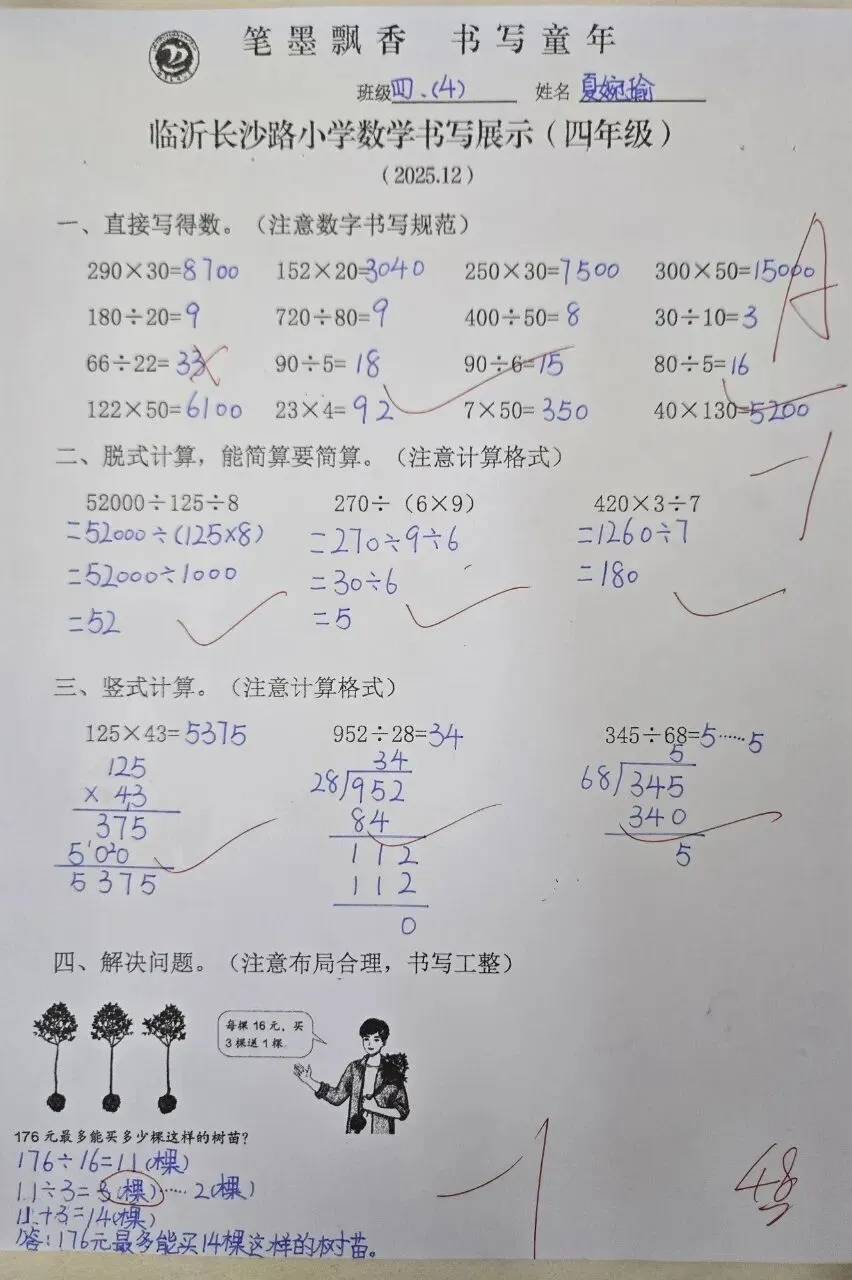 笔墨飘香 书写童年
班级四.(4) 姓名 夏婉瑜
临沂长沙路小学数学书写展示（四年级）
（2025.12）
一、直接写得数。（注意数字书写规范）
290×30=8700 152×20=3040 250×30=7500 300×50=15000
180÷20=9 720÷80=9 400÷50=8 30÷10=3
66÷22=33 90÷5=18 90÷6=15 80÷5=16
122×50=6100 23×4=92 7×50=350 40×130=5200
二、脱式计算，能简算要简算。（注意计算格式）
52000÷125÷8 270÷（6×9） 420×3÷7
=52000÷(125×8) =270÷9÷6 =1260÷7
=52000÷1000 =30÷6 =180
=52 =5
三、竖式计算。（注意计算格式）
125×43=5375 952÷28=34 345÷68=5……5
125 34 5
× 43 28 952 68 345
375 84 340
500 112 5
5375 112
0
四、解决问题。（注意布局合理，书写工整）
每棵16元，买
3棵送1棵。
176元最多能买多少棵这样的树苗？
176÷16=11(棵)
11÷3=3(棵)……2(棵)
11+3=14(棵)
答：176元最多能买14棵这样的树苗。
A
-1
-1
48